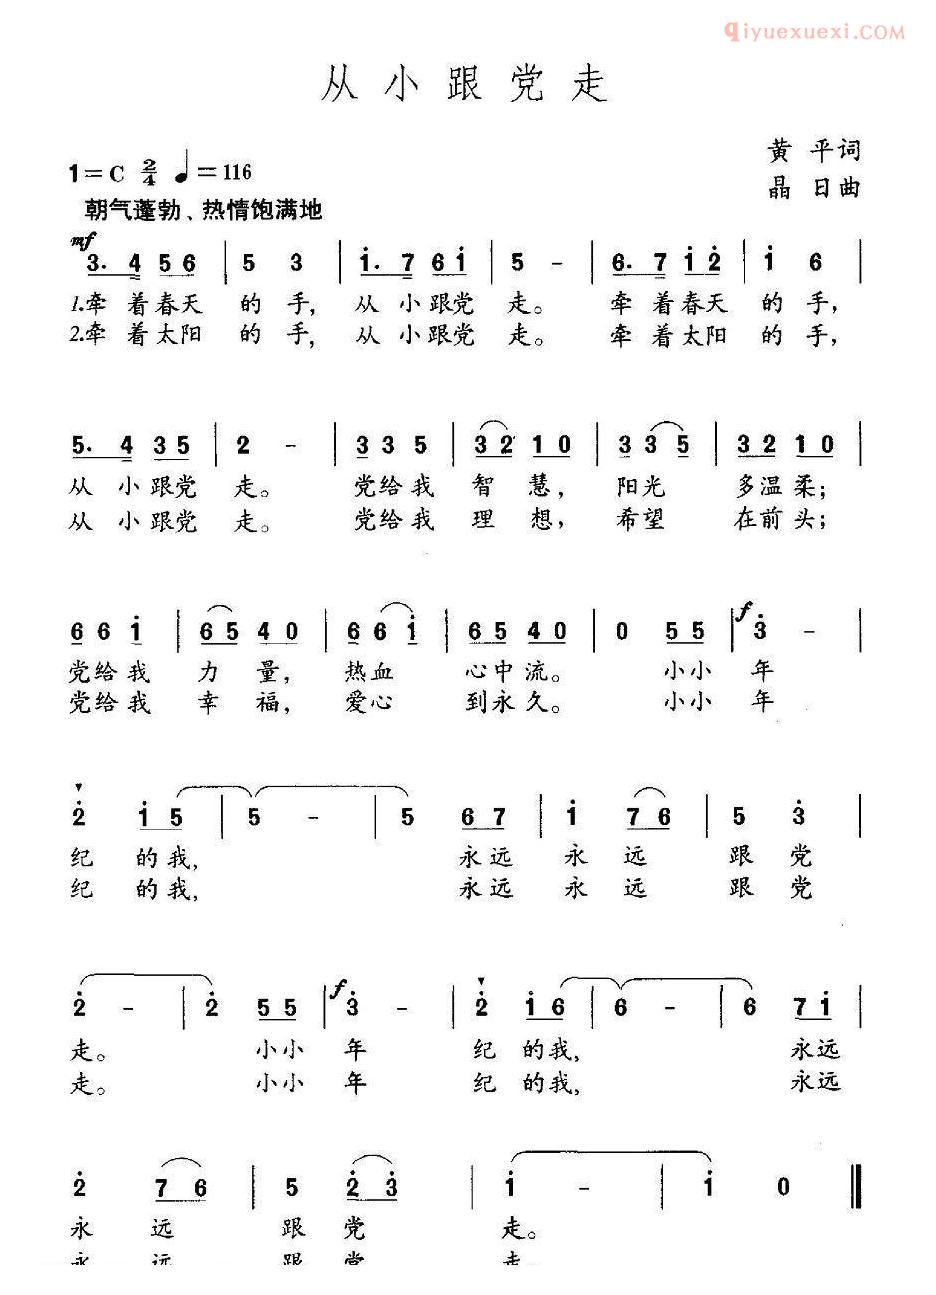 qiyuexuexi.COM
从小跟党走
黄 平词
1=C 2/4 ♩=116
晶 日曲
朝气蓬勃、热情饱满地
mf
3. 4 5 6 | 5 3 | i. 7 6 i | 5 - | 6. 7 i 2 | i 6 |
1.牵 着春天 的 手, 从 小跟党 走。 牵 着春天 的 手,
2.牵 着太阳 的 手, 从 小跟党 走。 牵 着太阳 的 手,
5. 4 3 5 | 2 - | 3 3 5 | 3 2 1 0 | 3 3 5 | 3 2 1 0 |
从 小跟党 走。 党给我 智 慧, 阳光 多温柔;
从 小跟党 走。 党给我 理 想, 希望 在前头;
f
6 6 i | 6 5 4 0 | 6 6 i | 6 5 4 0 | 0 5 5 | 3 - |
党给我 力 量, 热血 心中流。 小小 年
党给我 幸 福, 爱心 到永久。 小小 年
2 i 5 | 5 - | 5 6 7 | i 7 6 | 5 3 |
纪 的我, 永远 永 远 跟 党
纪 的我, 永远 永 远 跟 党
f
2 - | 2 5 5 | 3 - | 2 i 6 | 6 - | 6 7 i |
走。 小小 年 纪 的我, 永远
走。 小小 年 纪 的我, 永远
2 7 6 | 5 2 3 | i - | i 0 ‖
永 远 跟 党 走。
永 远 跟 党 走